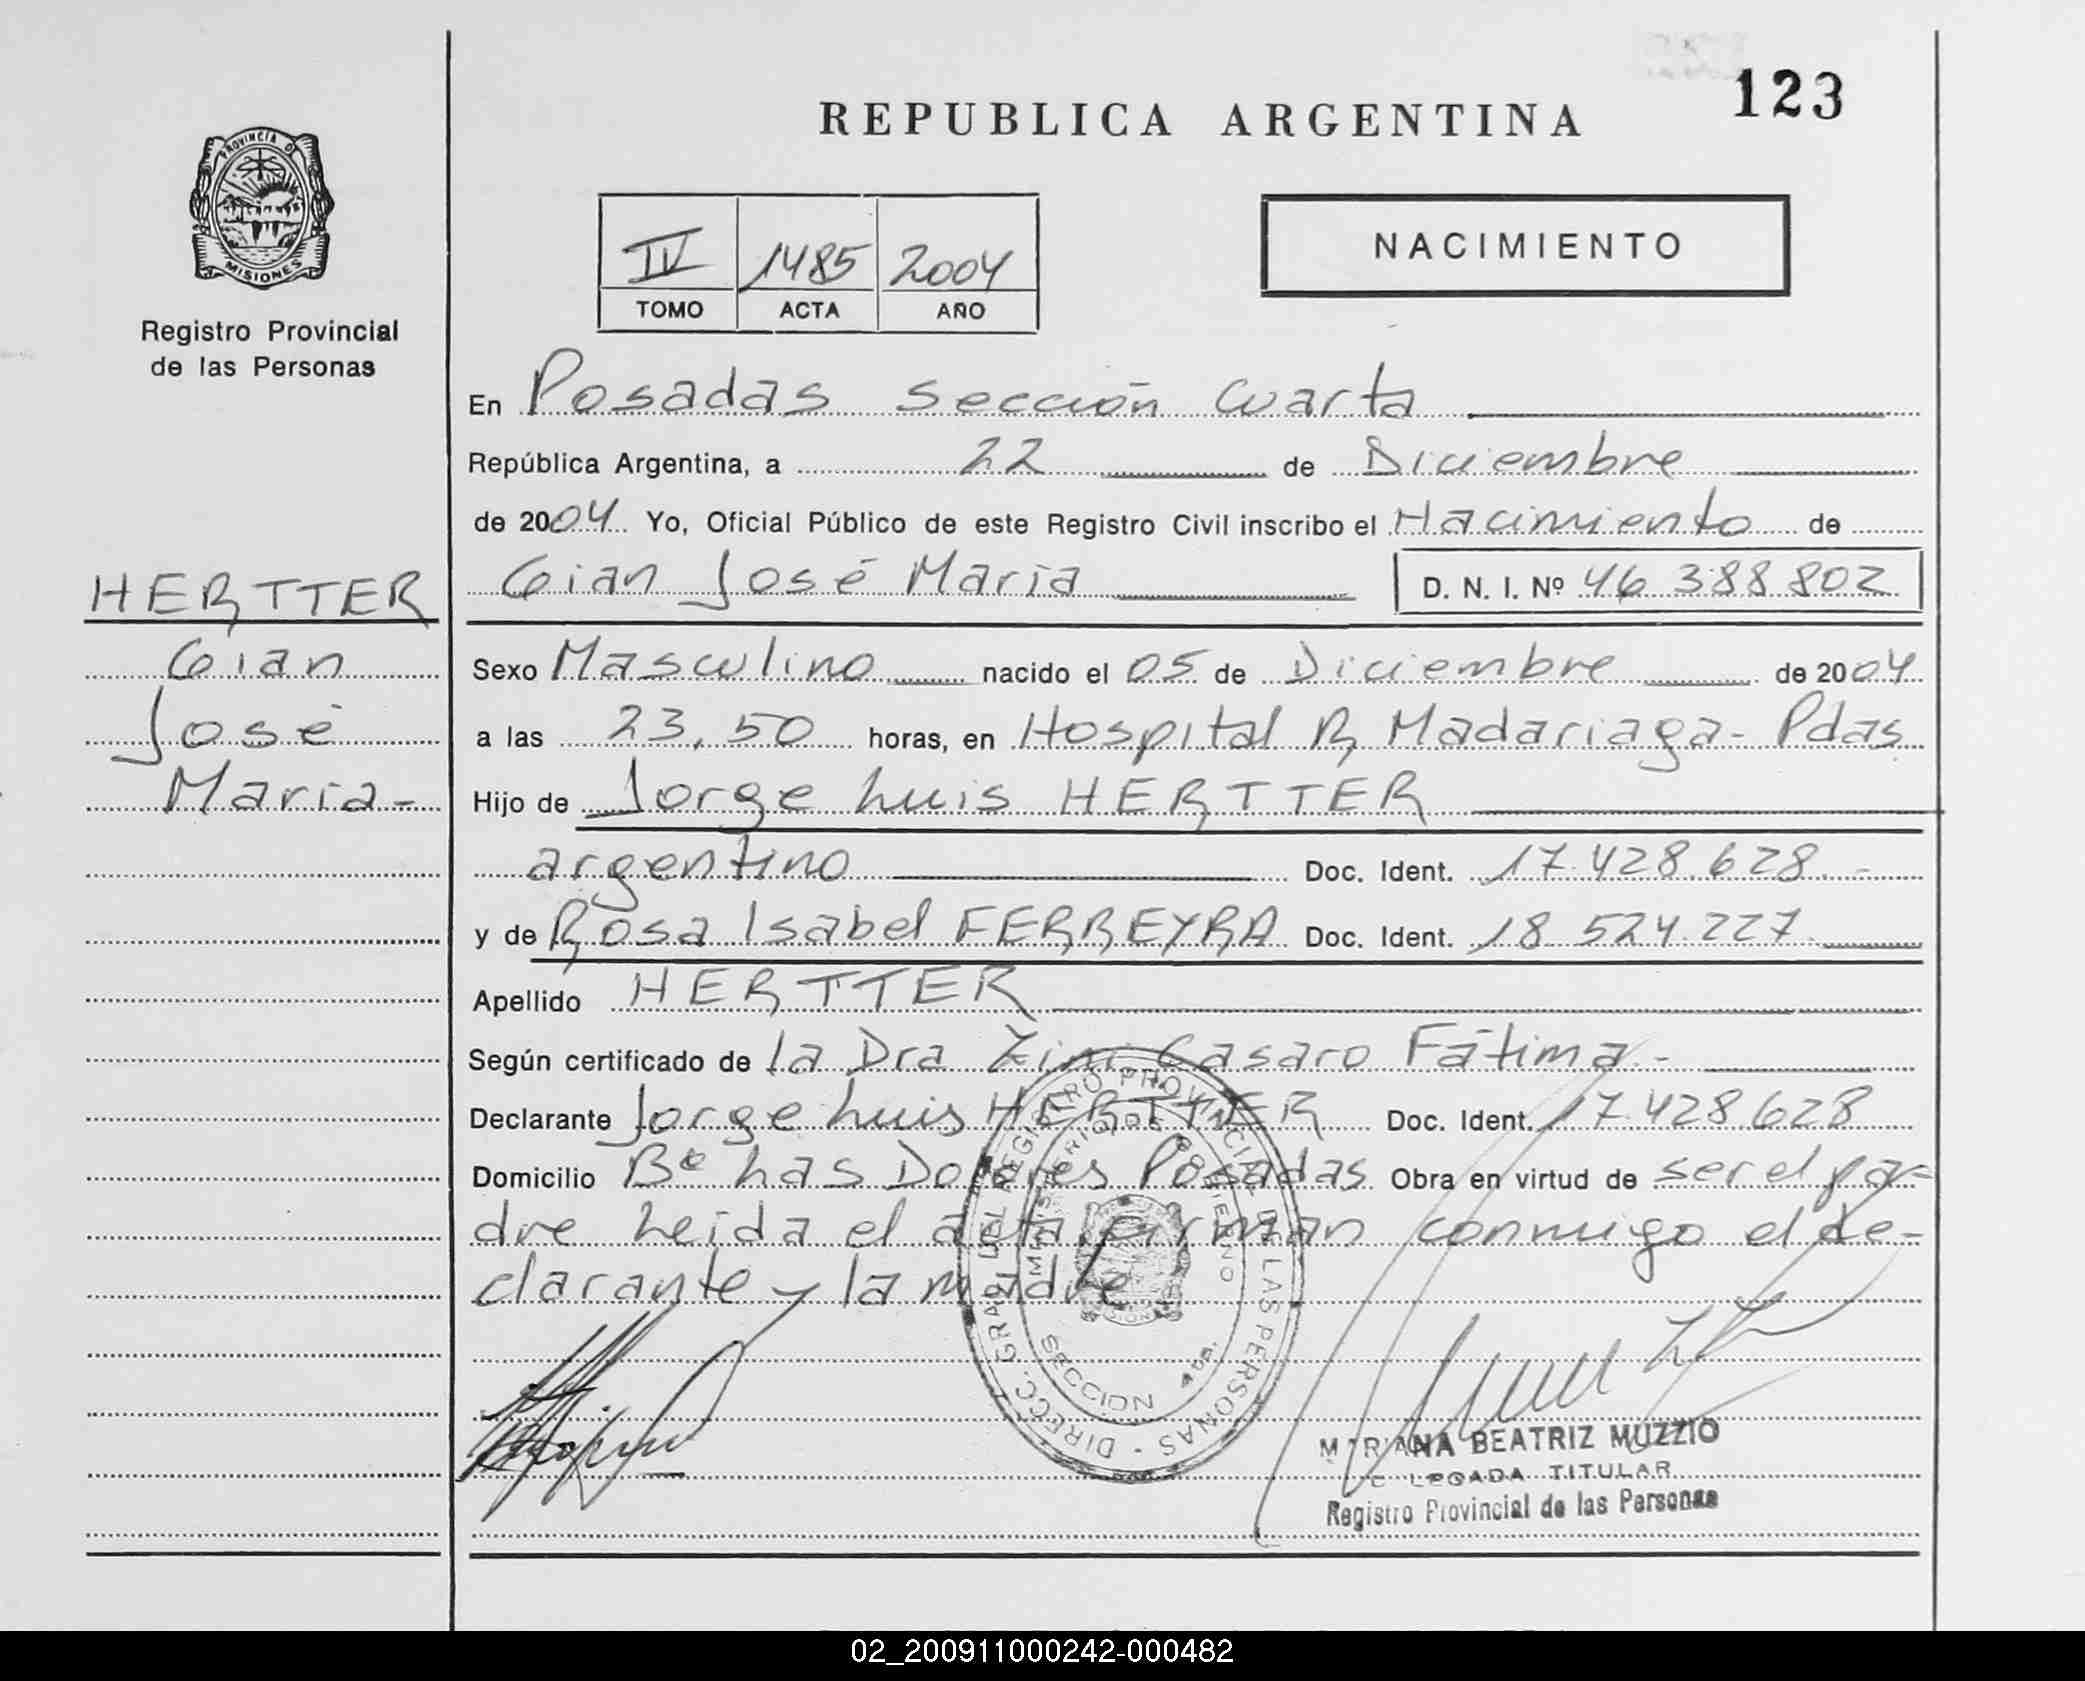 123
REPUBLICA ARGENTINA
PROVINCIA D
MISIONES
Registro Provincial
de las Personas
IV 1485 2004
TOMO ACTA AÑO
NACIMIENTO
En Posadas sección cuarta
República Argentina, a 22 de Diciembre
de 2004 Yo, Oficial Público de este Registro Civil inscribo el Nacimiento de
Gian José María D. N. I. Nº 46 388 802
HERTTER
Gian
José
María-
Sexo Masculino nacido el 05 de Diciembre de 2004
a las 23,50 horas, en Hospital R, Madariaga- Pdas
Hijo de Jorge Luis HERTTER
argentino Doc. Ident. 17.428.628.-
y de Rosa Isabel FERREYRA Doc. Ident. 18 524.227.
Apellido HERTTER
Según certificado de la Dra Zini Casaro Fátima-
Declarante Jorge Luis HERTTER Doc. Ident. 17.428.628
Domicilio Bº Las Dolores Posadas Obra en virtud de ser el pa-
dre Leida el acta firman conmigo el de-
clarante y la madre
DIRECC. GRAL. DEL REGISTRO PROVINCIAL DE LAS PERSONAS -
MINISTERIO DE GOBIERNO
SECCION 4ta.
MARIANA BEATRIZ MUZZIO
DELEGADA TITULAR
Registro Provincial de las Personas
02_200911000242-000482